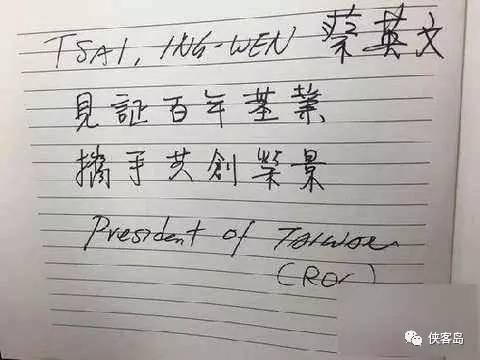 TSAI, ING-WEN 蔡英文
見証百年基業
攜手共創榮景
President of TAIWAN
(ROC)
侠客岛